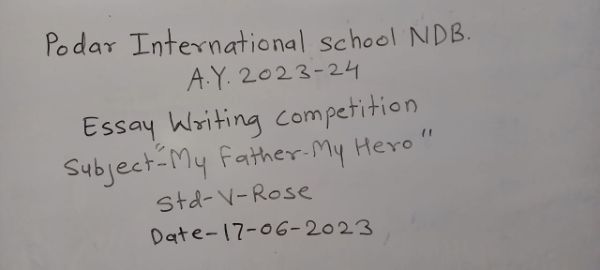 Podar International school NDB.
A.Y. 2023-24
Essay Writing competition
Subject-"My Father-My Hero"
Std-V-Rose
Date-17-06-2023